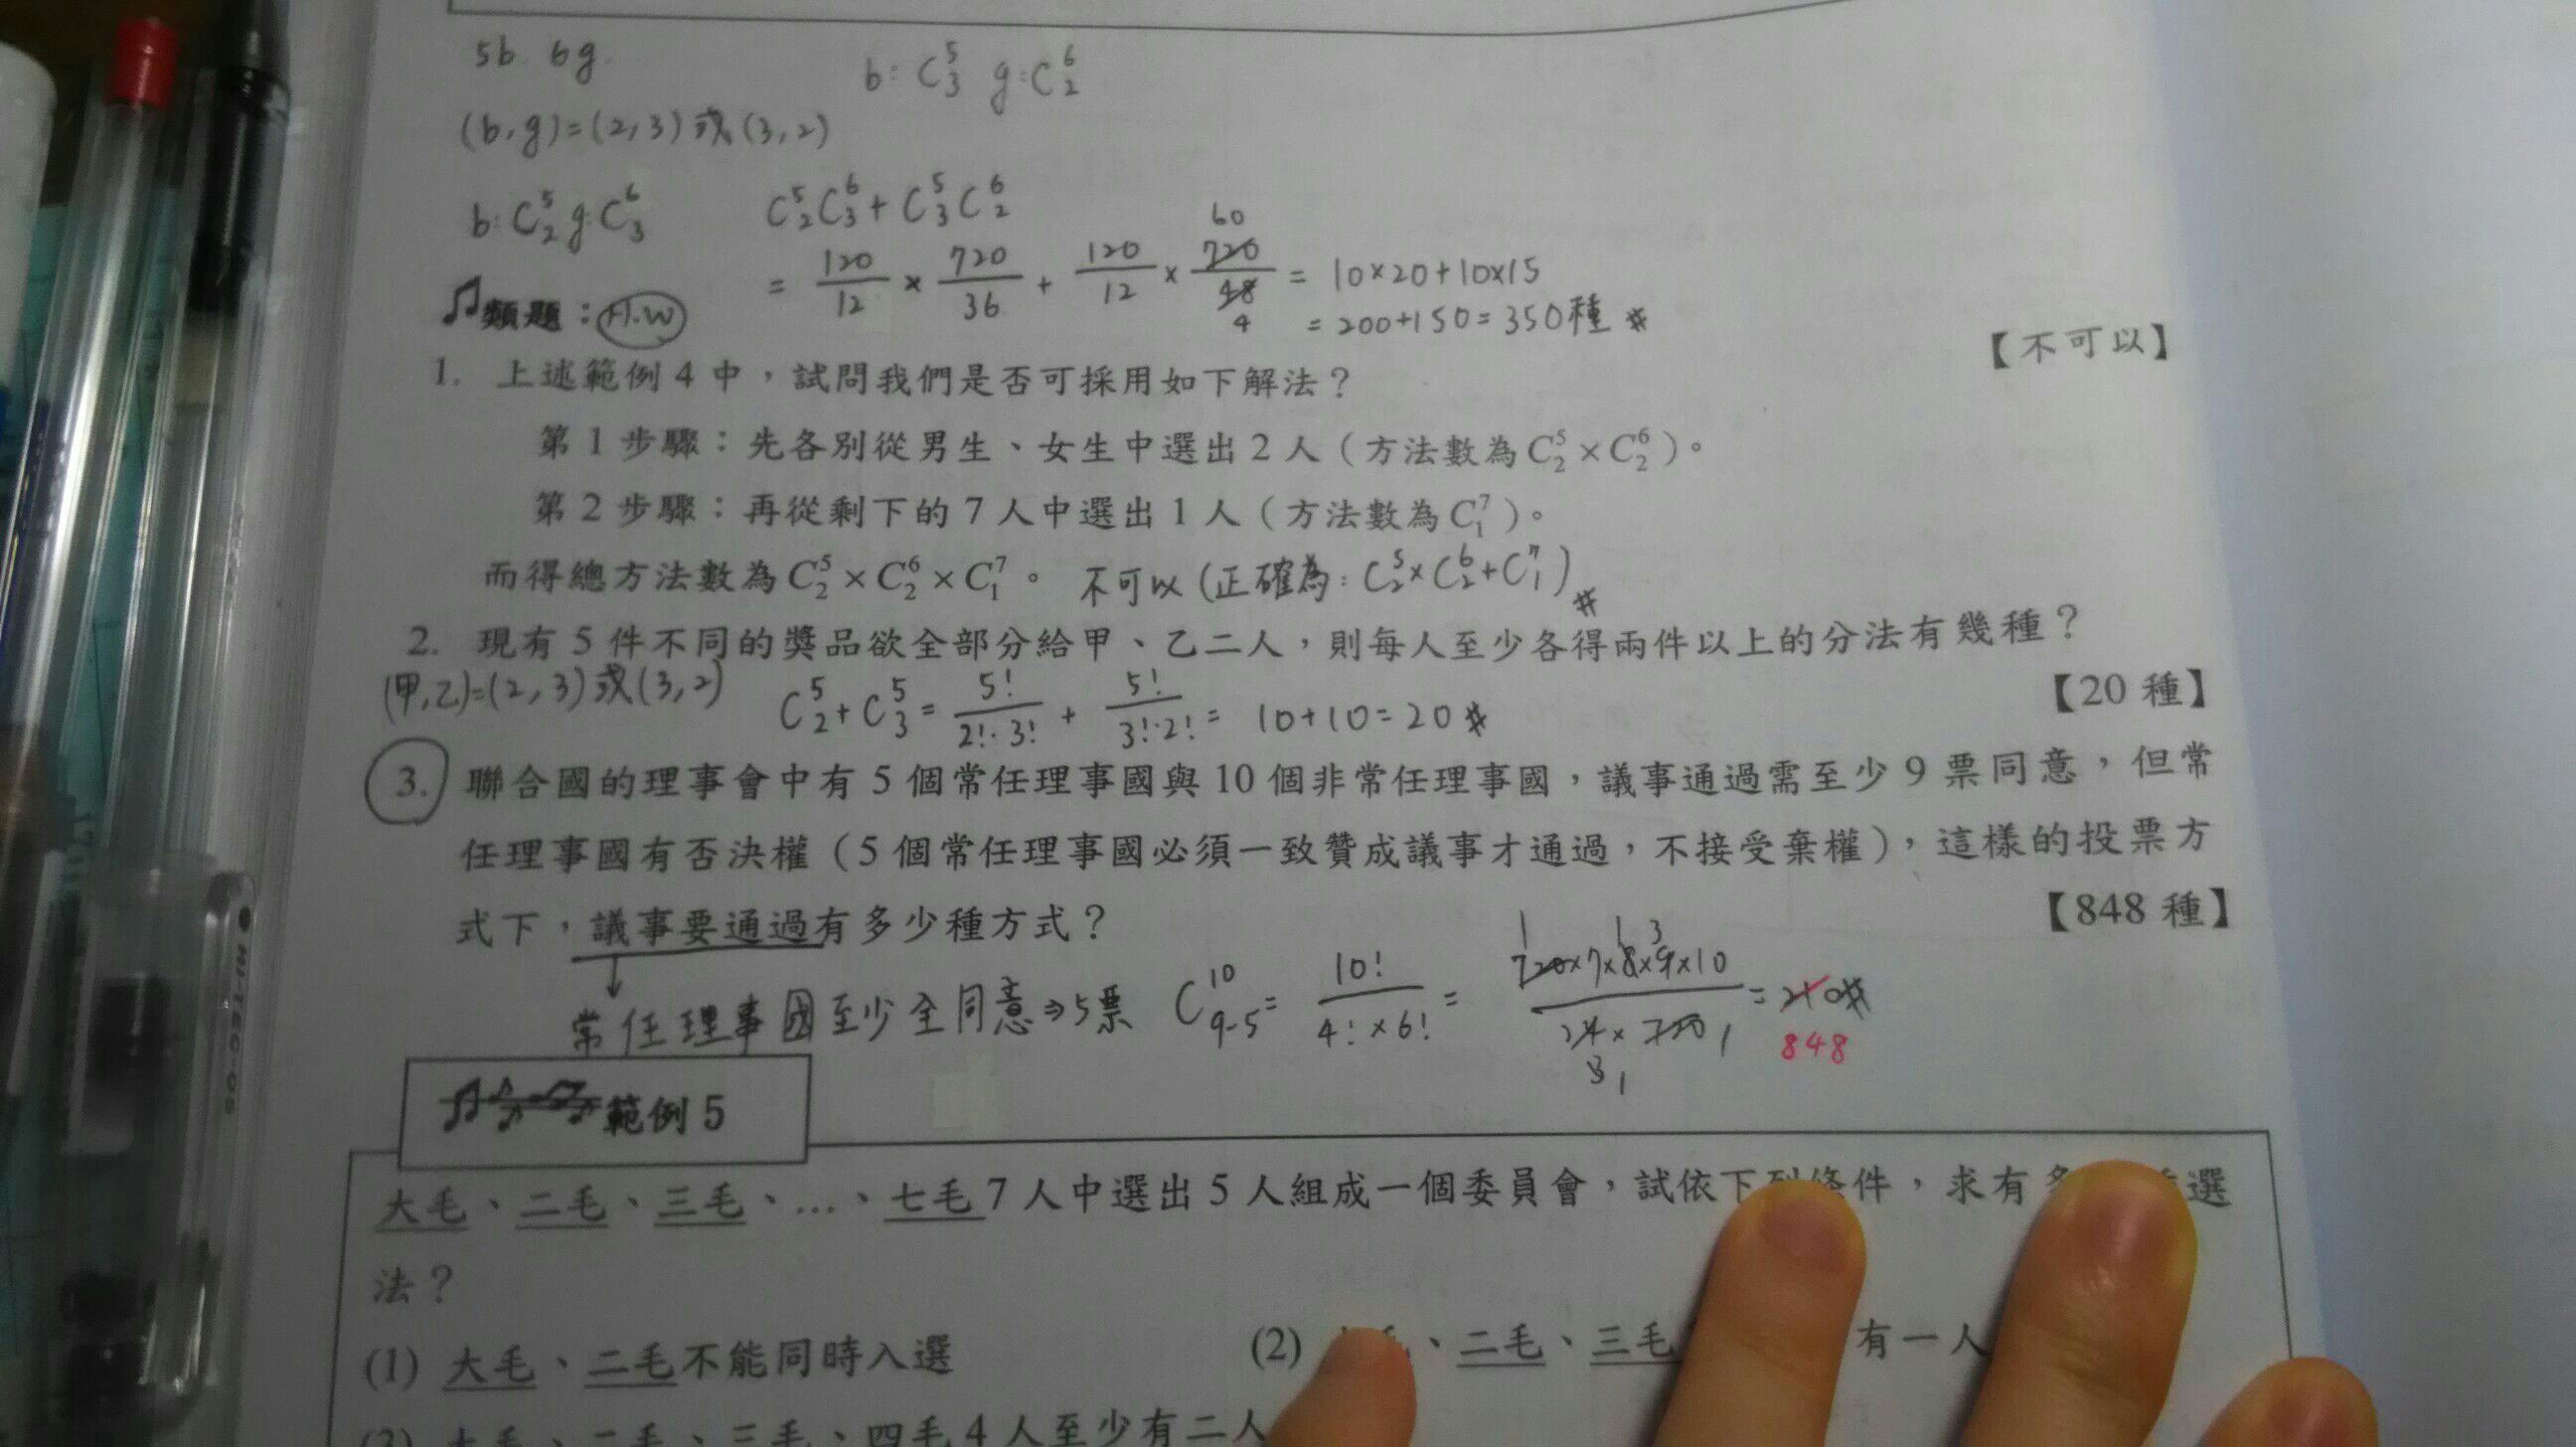 5b. 6g.
b: C⁵₃ g: C⁶₂
(b,g)=(2,3)或(3,2)
b: C⁵₂ g: C⁶₃
C⁵₂C⁶₃+C⁵₃C⁶₂
= 120/12 × 720/36 + 120/12 × 720/48 = 10×20+10×15
60
4
= 200+150=350種 #
類題：H.W
1. 上述範例4中，試問我們是否可採用如下解法？
【不可以】
第1步驟：先各別從男生、女生中選出2人（方法數為C⁵₂×C⁶₂）。
第2步驟：再從剩下的7人中選出1人（方法數為C⁷₁）。
而得總方法數為C⁵₂×C⁶₂×C⁷₁。 不可以(正確為：C⁵₂×C⁶₂+C⁷₁) #
2. 現有5件不同的獎品欲全部分給甲、乙二人，則每人至少各得兩件以上的分法有幾種？
【20種】
(甲,乙)=(2,3)或(3,2) C⁵₂+C⁵₃= 5!/(2!·3!) + 5!/(3!·2!) = 10+10=20 #
3. 聯合國的理事會中有5個常任理事國與10個非常任理事國，議事通過需至少9票同意，但常
任理事國有否決權（5個常任理事國必須一致贊成議事才通過，不接受棄權），這樣的投票方
式下，議事要通過有多少種方式？
【848種】
↓
常任理事國至少全同意⇒5票 C¹⁰₉₋₅= 10!/(4!×6!) = (720×7×8×9×10)/(24×720) = 210#
1 1 3
3 1 1
848
範例5
大毛、二毛、三毛、…、七毛7人中選出5人組成一個委員會，試依下列條件，求有 選
法？
(1) 大毛、二毛不能同時入選
(2) 、二毛、三毛 有一人
大毛、二毛、三毛、四毛4人至少有二人